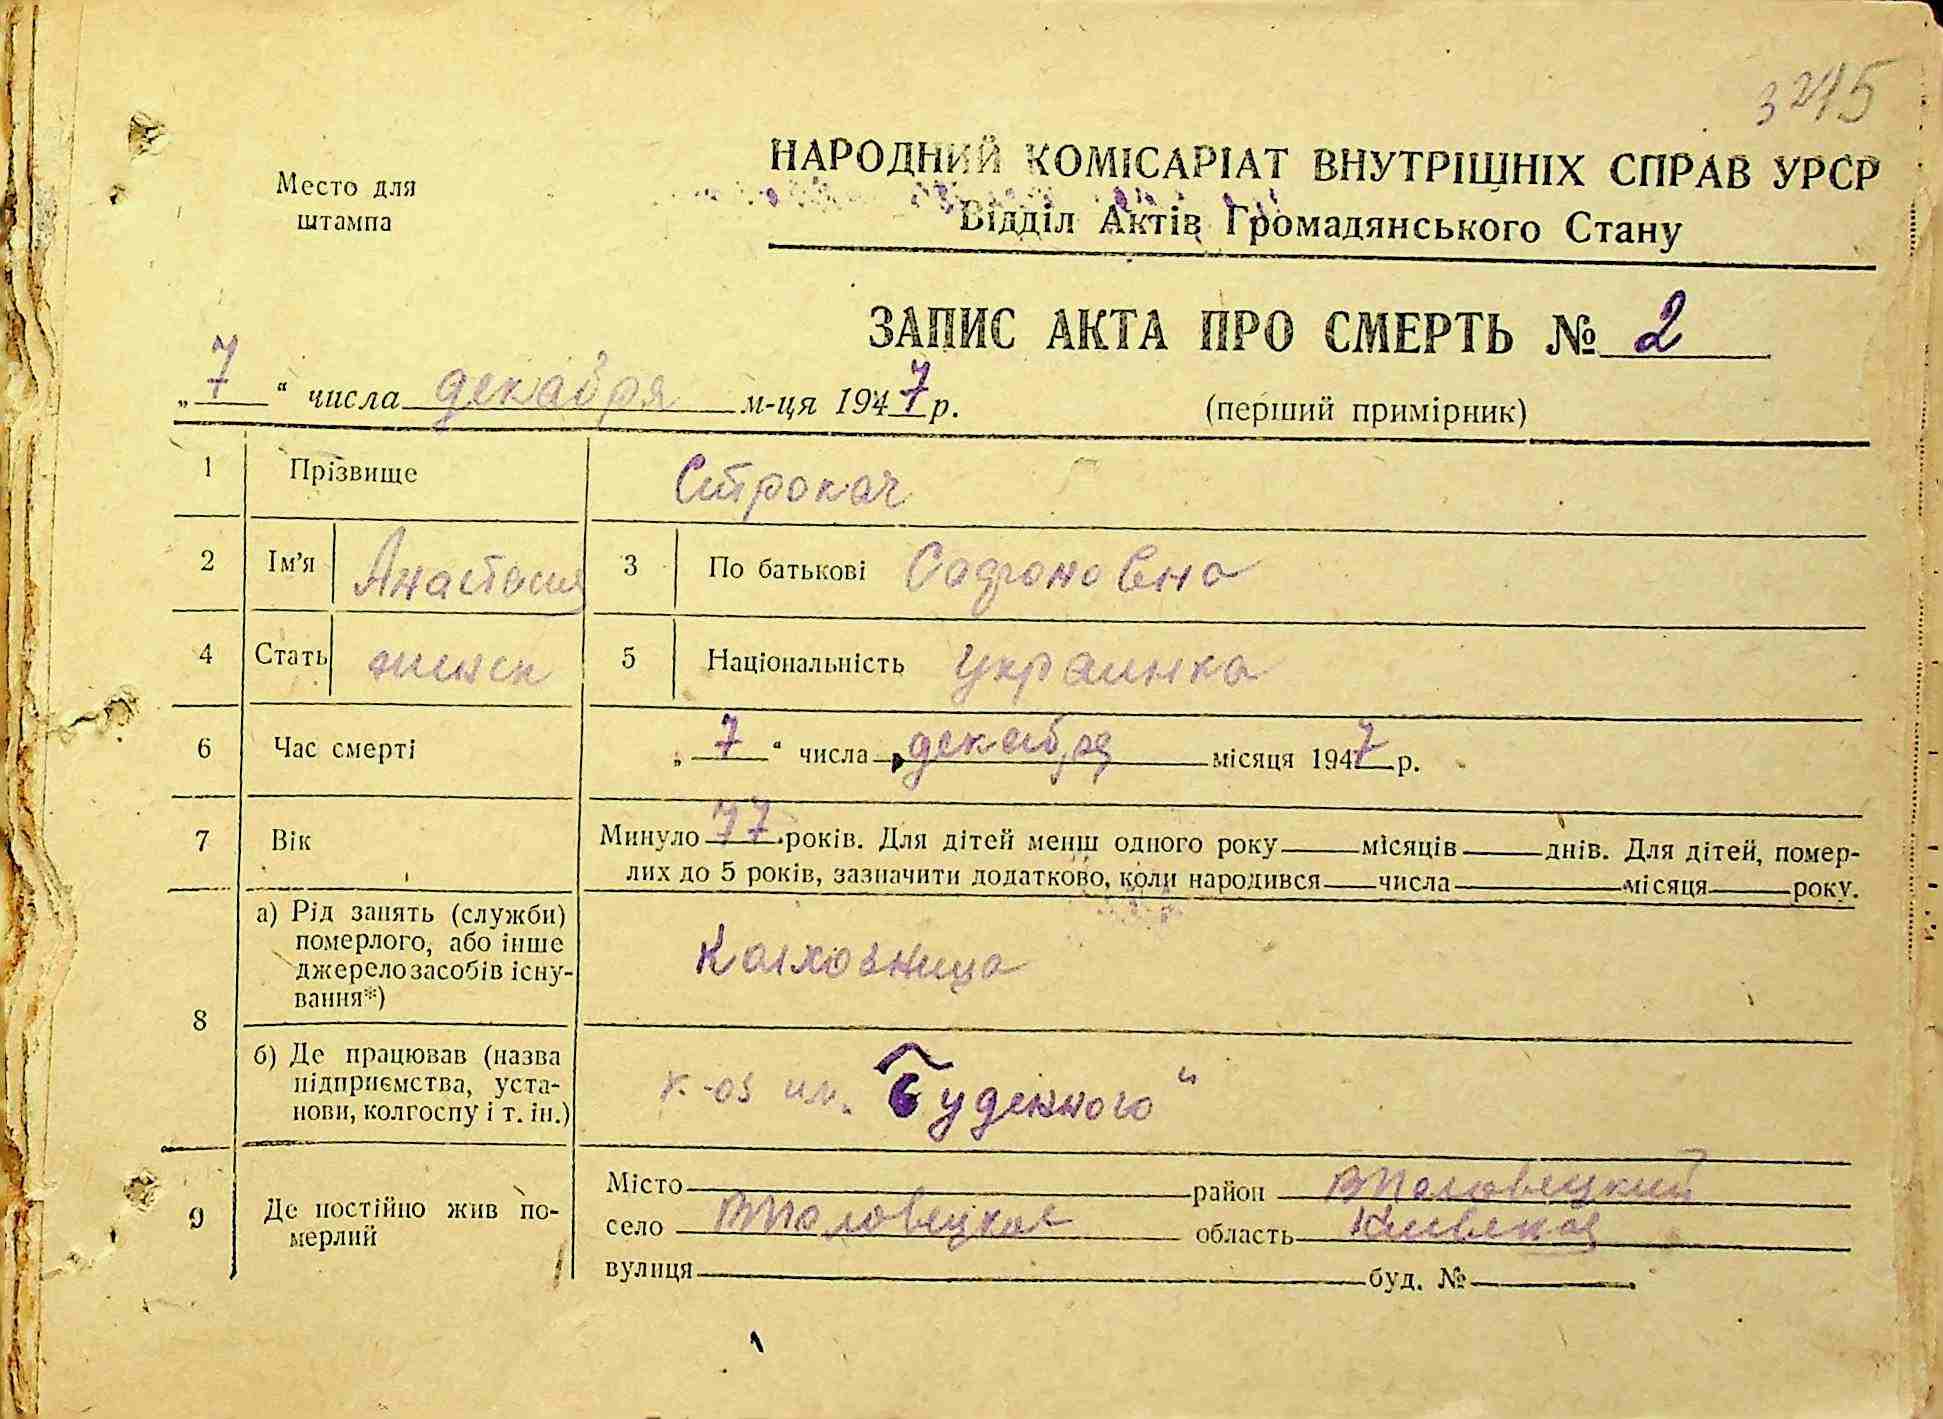 3215
Место для
штампа
НАРОДНИЙ КОМІСАРІАТ ВНУТРІШНІХ СПРАВ УРСР
Відділ Актів Громадянського Стану
ЗАПИС АКТА ПРО СМЕРТЬ № 2
„7“ числа декабря м-ця 1947 р. (перший примірник)
1 Прізвище Строкач
2 Ім'я Анастасия 3 По батькові Софроновна
4 Стать женск 5 Національність Украинка
6 Час смерті „7“ числа декабря місяця 1947 р.
7 Вік Минуло 77 років. Для дітей менш одного року місяців днів. Для дітей, помер-
лих до 5 років, зазначити додатково, коли народився числа місяця року.
8 а) Рід занять (служби)
померлого, або інше
джерело засобів існу-
вання*)
Колхозница
б) Де працював (назва
підприємства, уста-
нови, колгоспу і т. ін.)
к-оз им. Буденного"
9 Де постійно жив по-
мерлий
Місто район ВПоловецкий
село ВПоловецкое область Киевская
вулиця буд. №